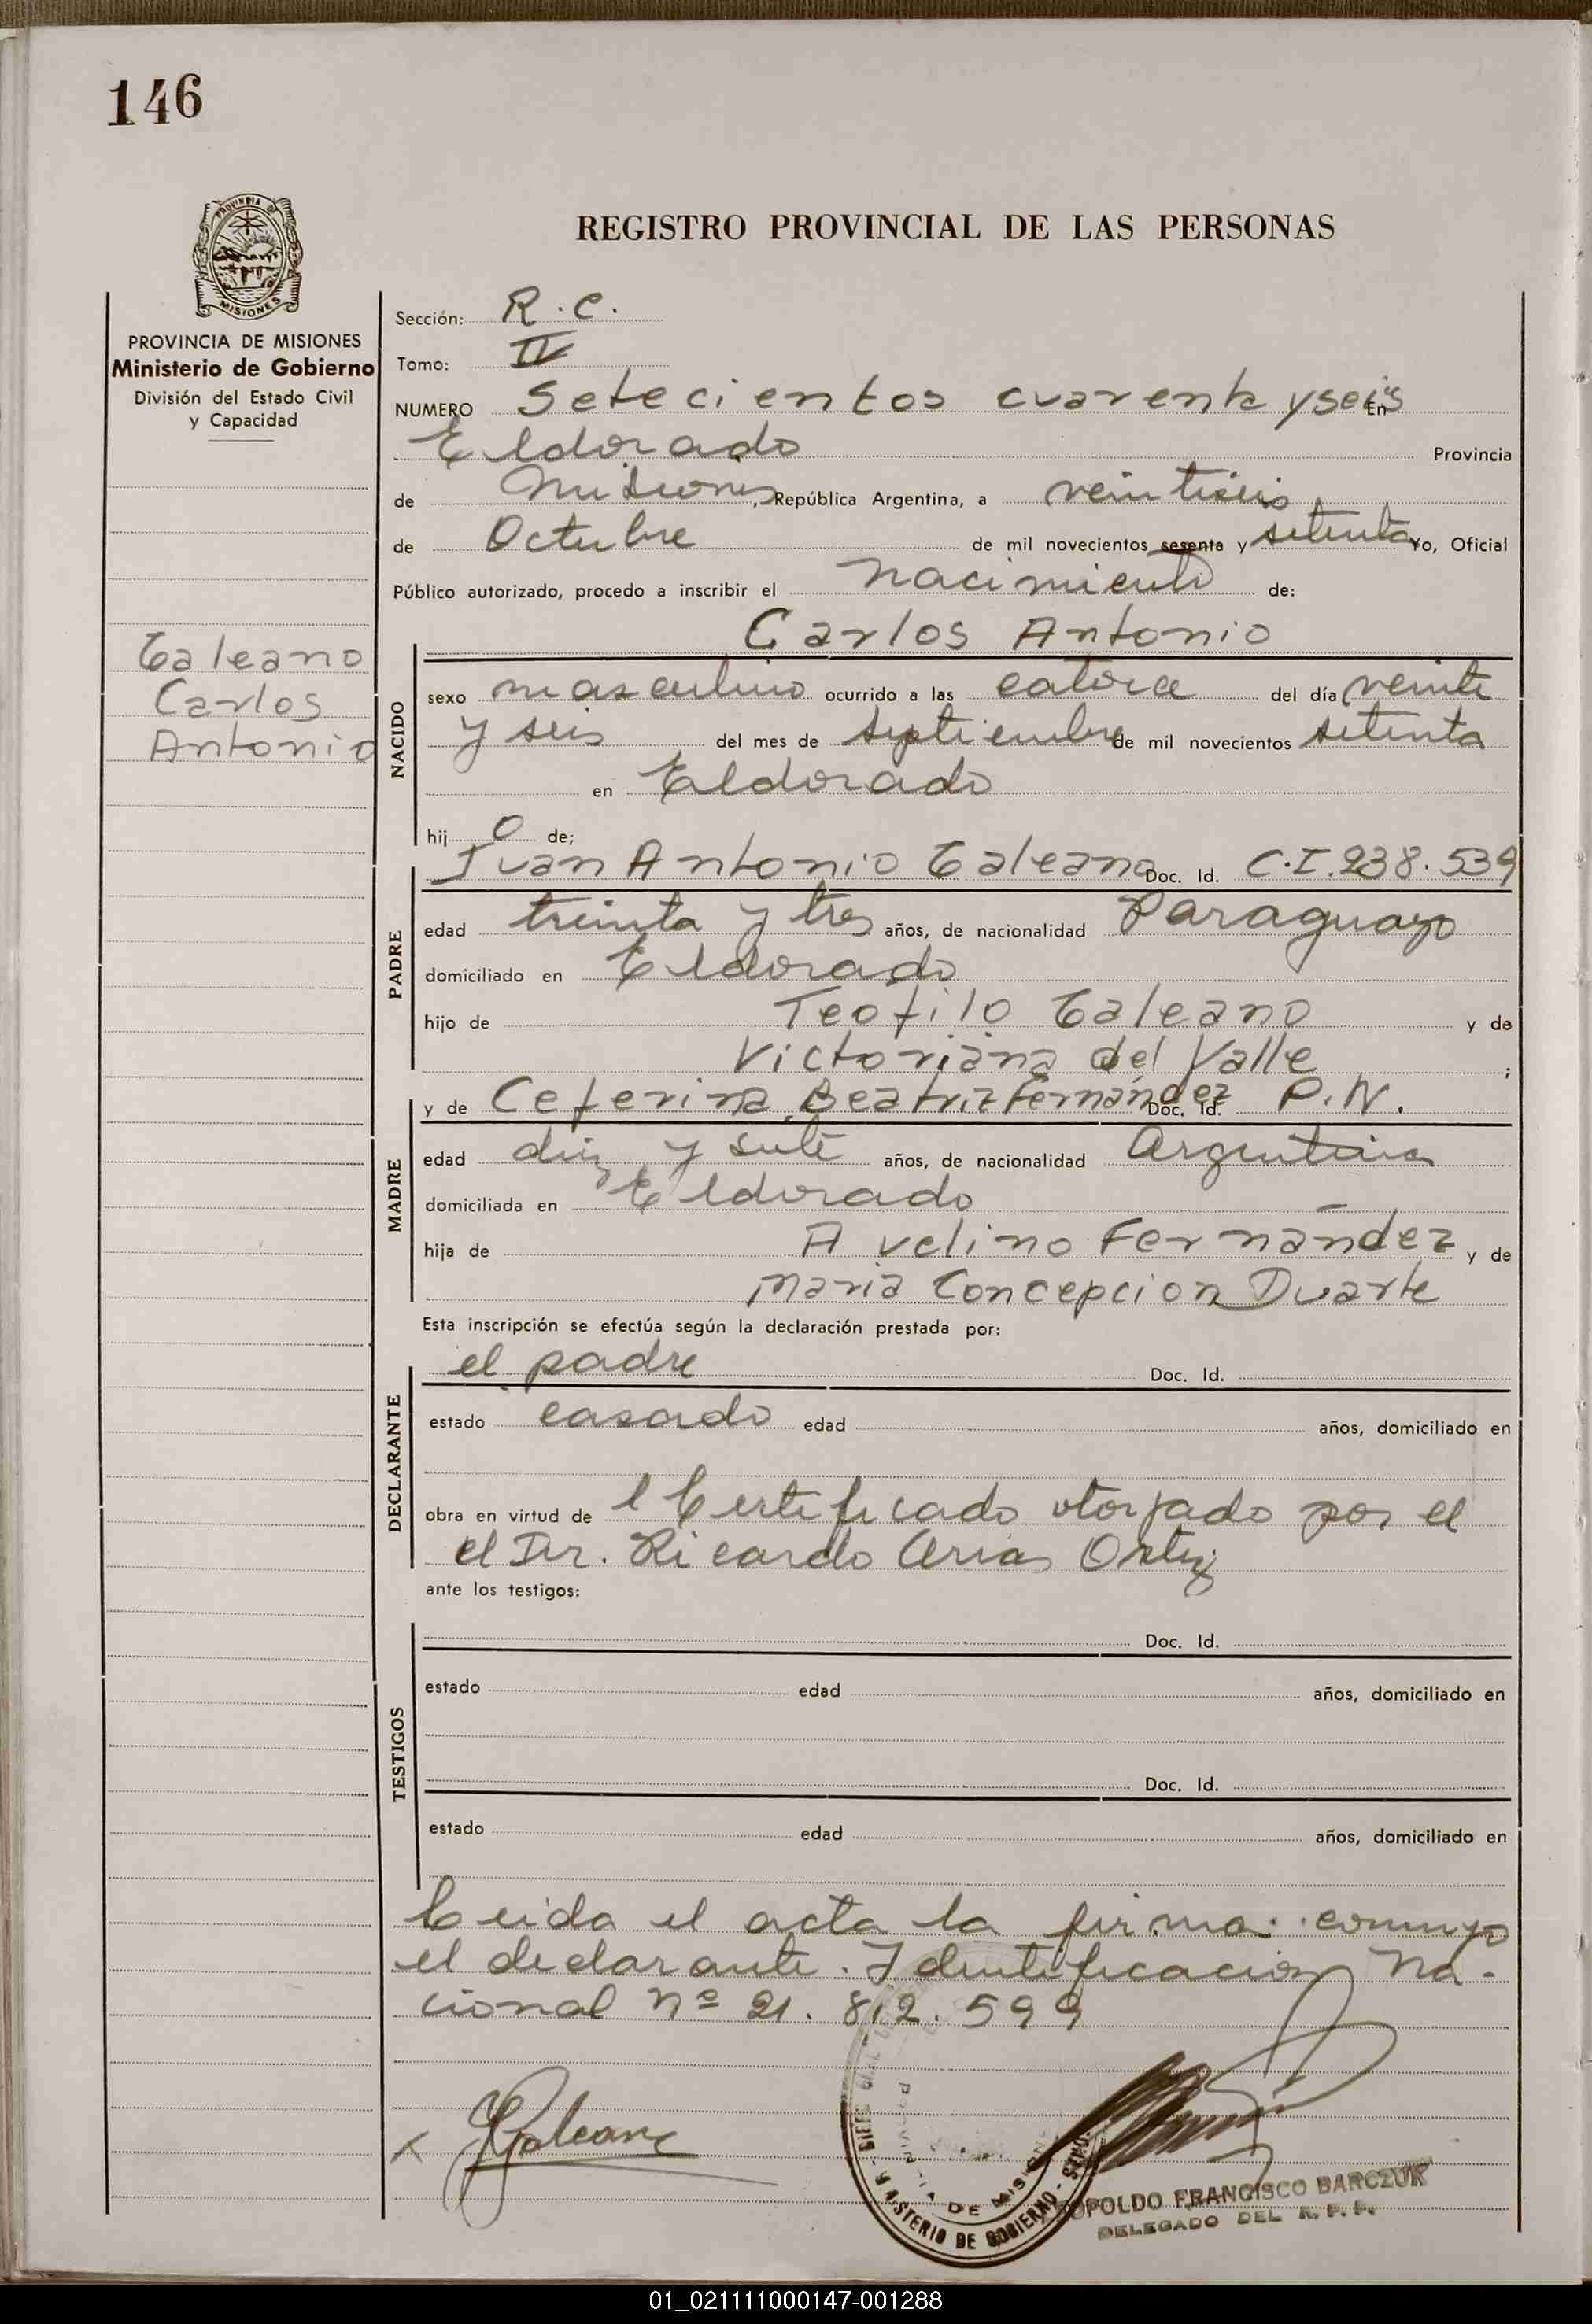 146
REGISTRO PROVINCIAL DE LAS PERSONAS
PROVINCIA DE MISIONES
Ministerio de Gobierno
División del Estado Civil
y Capacidad
Galeano
Carlos
Antonio
Sección: R.C.
Tomo: IV
NUMERO Setecientos cuarenta y seis En
Eldorado Provincia
de Misiones, República Argentina, a veintiséis
de Octubre de mil novecientos sesenta y setenta Yo, Oficial
Público autorizado, procedo a inscribir el nacimiento de:
Carlos Antonio
NACIDO
sexo masculino ocurrido a las catorce del día veinte
y seis del mes de septiembre de mil novecientos setenta
en Eldorado
hij o de;
PADRE
Juan Antonio Galeano Doc. Id. C.I. 238.539
edad treinta y tres años, de nacionalidad Paraguayo
domiciliado en Eldorado
hijo de Teofilo Galeano y de
Victoriana del Valle ;
MADRE
y de Ceferina Beatriz Fernández Doc. Id. P.N.
edad diez y siete años, de nacionalidad Argentina
domiciliada en Eldorado
hija de Avelino Fernández y de
Maria Concepcion Duarte
Esta inscripción se efectúa según la declaración prestada por:
DECLARANTE
el padre Doc. Id.
estado casado edad años, domiciliado en
obra en virtud de l Certificado otorgado por el
el Dr. Ricardo Arias Ortiz
ante los testigos:
TESTIGOS
Doc. Id.
estado edad años, domiciliado en
Doc. Id.
estado edad años, domiciliado en
Leida el acta la firma conmigo
el declarante. Identificacion Na-
cional nº 21.812.599
x JGaleano
PROVINCIA DE MISIONES
MINISTERIO DE GOBIERNO
LEOPOLDO FRANCISCO BARCZUK
DELEGADO DEL R. P. P.
01_021111000147-001288